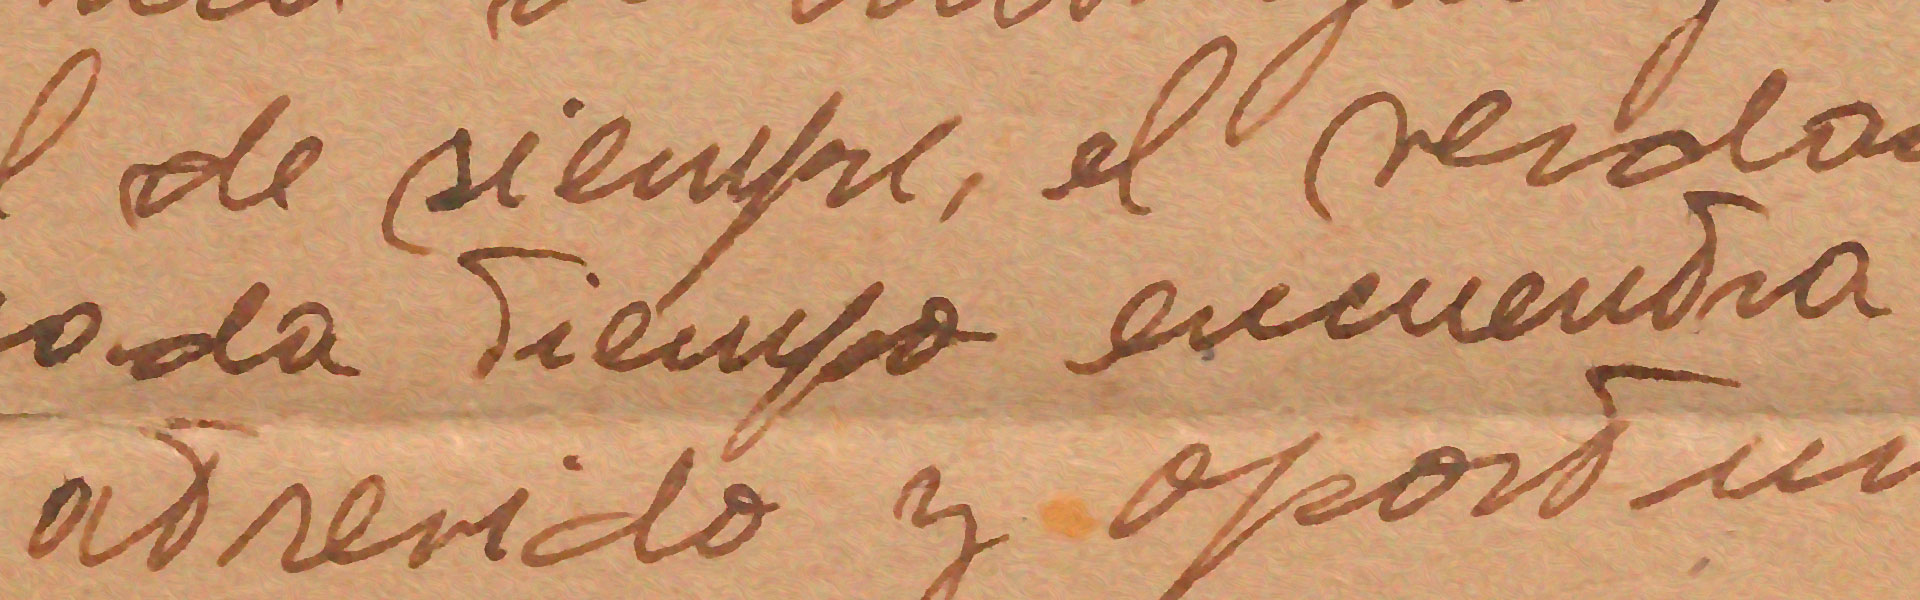 l de siempre, el verda
oda tiempo encuentra
atrevido y oportun